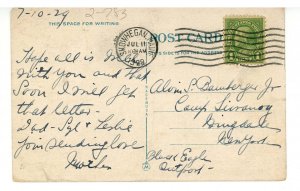 7-10-29
THIS SPACE FOR WRITING
POST CARD
SKOWHEGAN
JUL 11
1929
Hope all is
with you and that
soon I will get
that letter-
Dad-Syl & Leslie
join sending love
Mother
Alvin S. Bamberger Jr
Camp
New York
Black Eagle
Outpost-